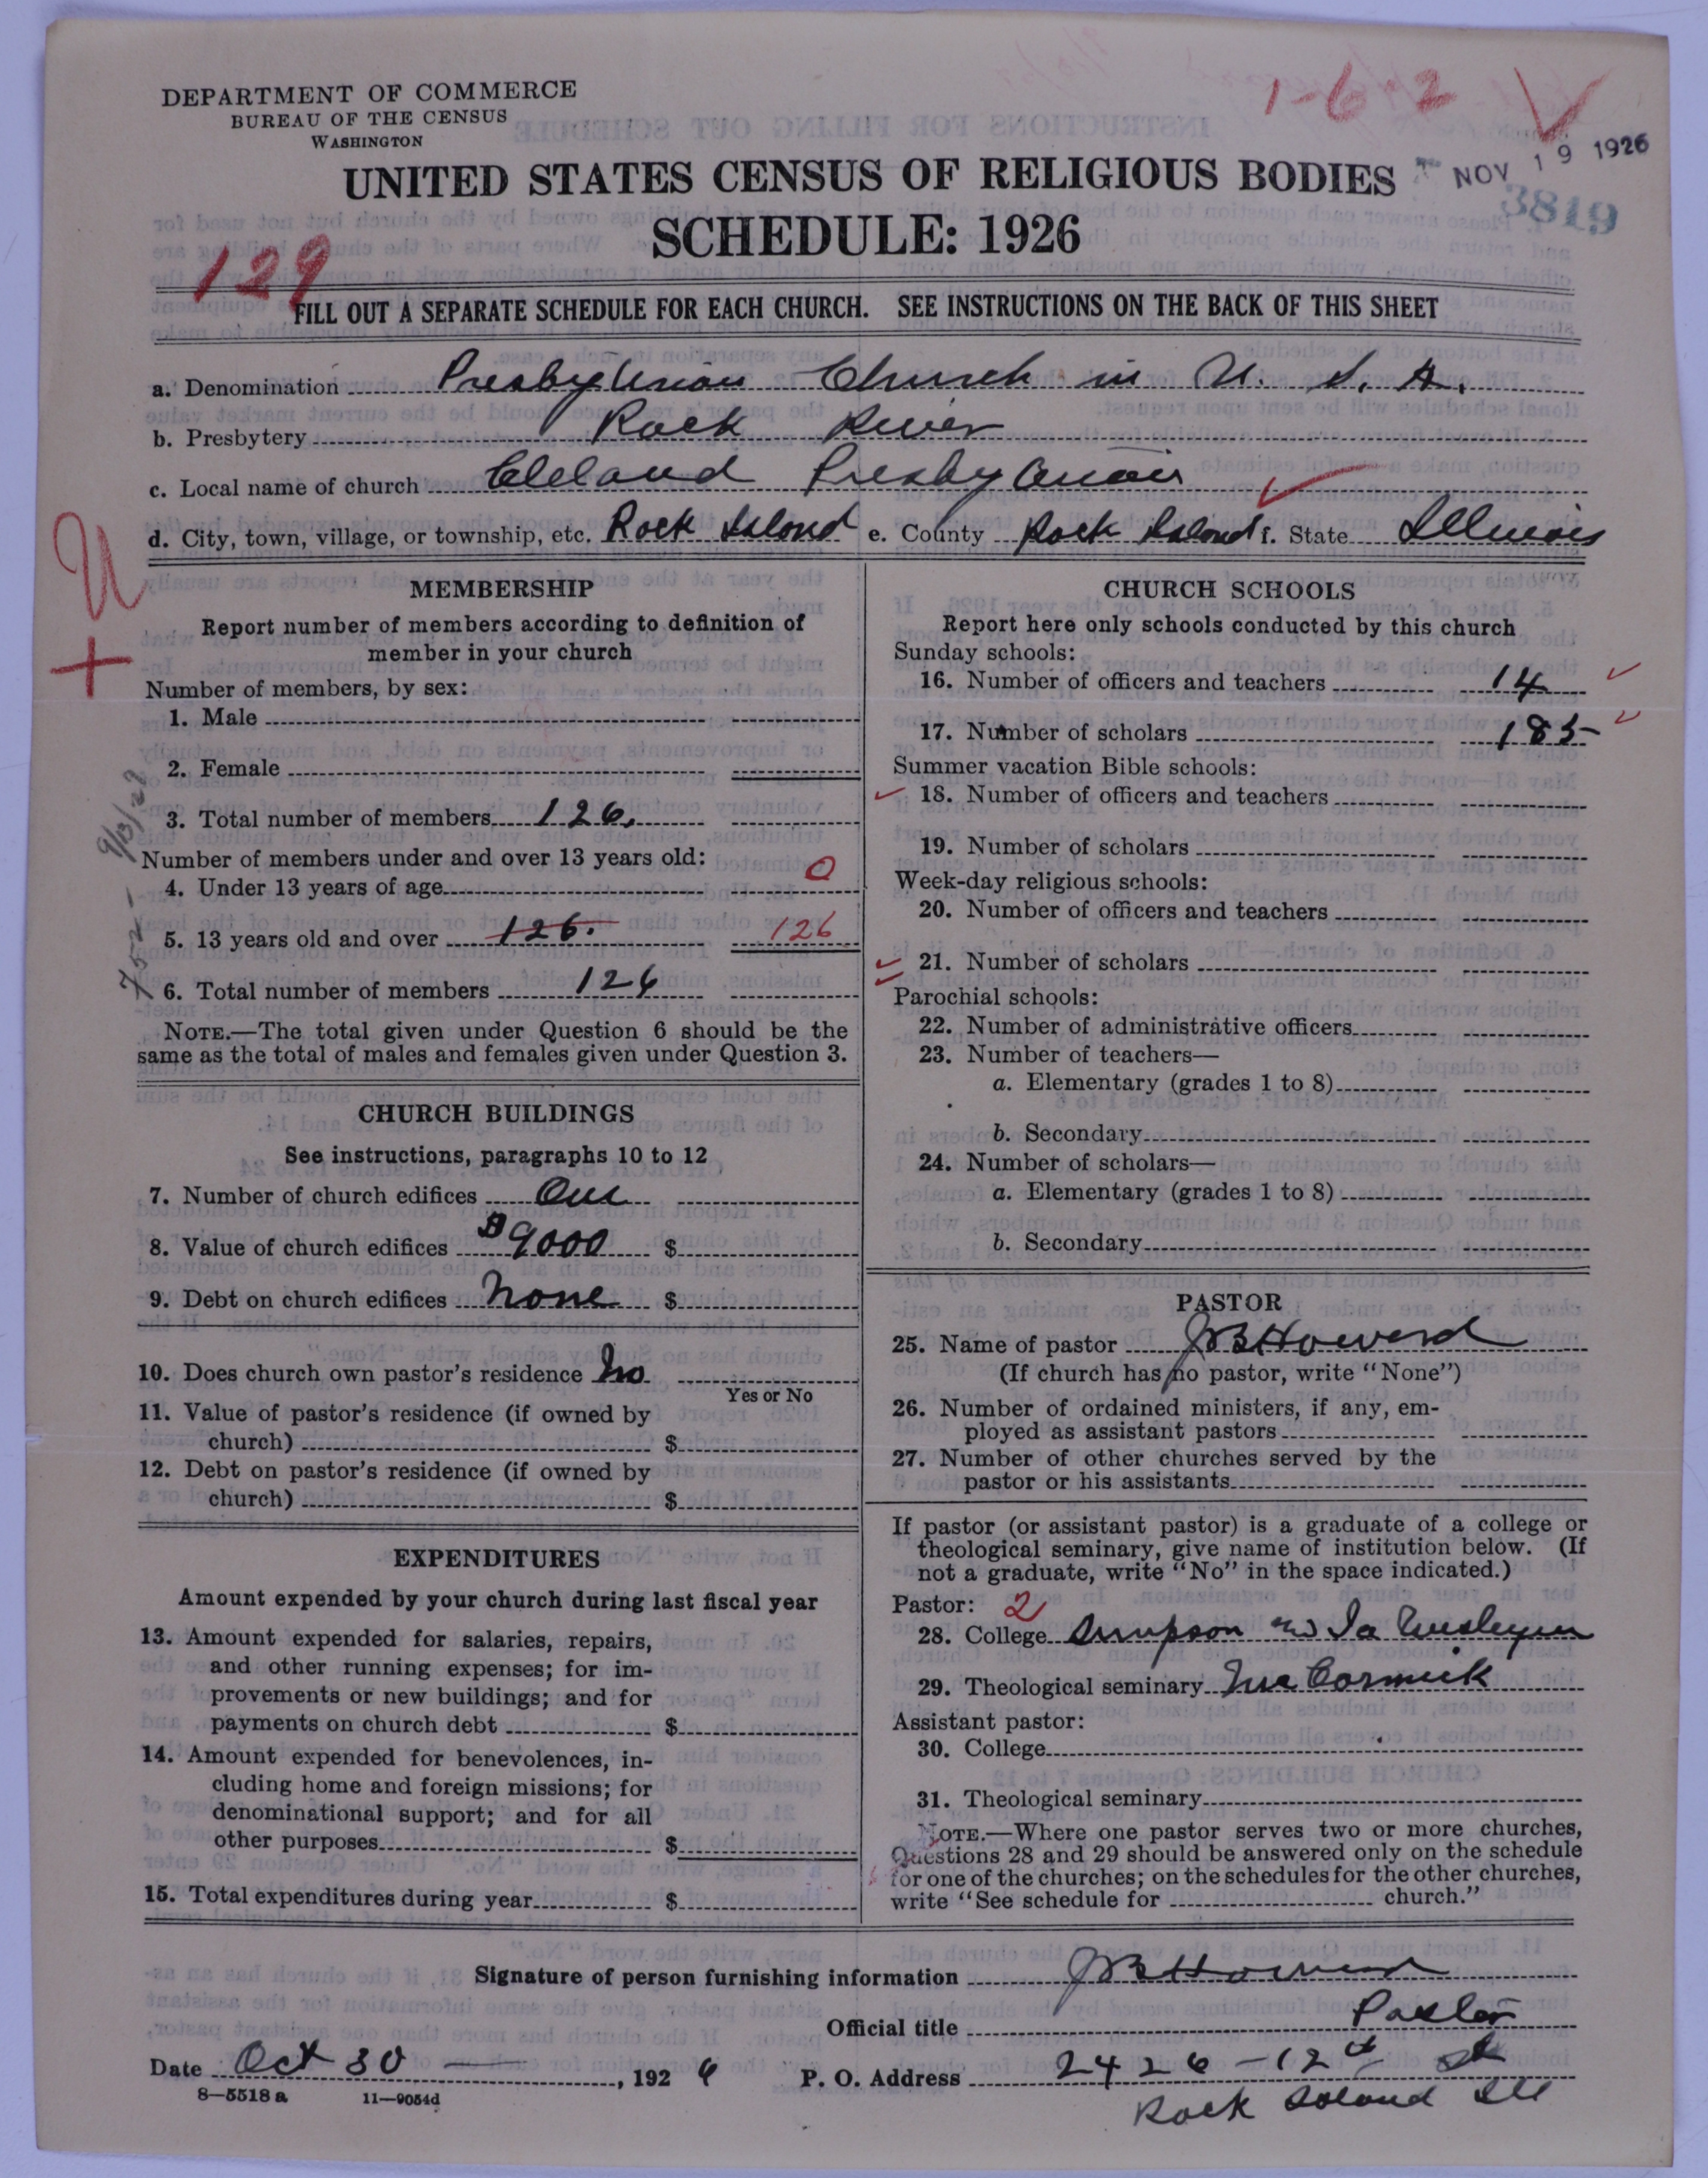 DEPARTMENT OF COMMERCE
BUREAU OF THE CENSUS
WASHINGTON
1-62
NOV 19 1926
3819
UNITED STATES CENSUS OF RELIGIOUS BODIES
SCHEDULE: 1926
129
FILL OUT A SEPARATE SCHEDULE FOR EACH CHURCH. SEE INSTRUCTIONS ON THE BACK OF THIS SHEET
a. Denomination Presbyterian Church in U. S. A.
b. Presbytery Rock River
c. Local name of church Cleland Presbyterian
d. City, town, village, or township, etc. Rock Island e. County Rock Island f. State Illinois
U
+
MEMBERSHIP
Report number of members according to definition of
member in your church
Number of members, by sex:
1. Male
2. Female
3. Total number of members 126.
Number of members under and over 13 years old:
4. Under 13 years of age 0
5. 13 years old and over 126. 126
6. Total number of members 126
NOTE.—The total given under Question 6 should be the
same as the total of males and females given under Question 3.
CHURCH BUILDINGS
See instructions, paragraphs 10 to 12
7. Number of church edifices One
8. Value of church edifices $9000 $
9. Debt on church edifices None $
10. Does church own pastor's residence No
Yes or No
11. Value of pastor's residence (if owned by
church) $
12. Debt on pastor's residence (if owned by
church) $
EXPENDITURES
Amount expended by your church during last fiscal year
13. Amount expended for salaries, repairs,
and other running expenses; for im-
provements or new buildings; and for
payments on church debt $
14. Amount expended for benevolences, in-
cluding home and foreign missions; for
denominational support; and for all
other purposes $
15. Total expenditures during year $
CHURCH SCHOOLS
Report here only schools conducted by this church
Sunday schools:
16. Number of officers and teachers 14
17. Number of scholars 185
Summer vacation Bible schools:
18. Number of officers and teachers
19. Number of scholars
Week-day religious schools:
20. Number of officers and teachers
21. Number of scholars
Parochial schools:
22. Number of administrative officers
23. Number of teachers—
a. Elementary (grades 1 to 8)
b. Secondary
24. Number of scholars—
a. Elementary (grades 1 to 8)
b. Secondary
PASTOR
25. Name of pastor J B Howard
(If church has no pastor, write "None")
26. Number of ordained ministers, if any, em-
ployed as assistant pastors
27. Number of other churches served by the
pastor or his assistants
If pastor (or assistant pastor) is a graduate of a college or
theological seminary, give name of institution below. (If
not a graduate, write "No" in the space indicated.)
Pastor: 2
28. College Simpson and Ia Wesleyan
29. Theological seminary McCormick
Assistant pastor:
30. College
31. Theological seminary
NOTE.—Where one pastor serves two or more churches,
Questions 28 and 29 should be answered only on the schedule
for one of the churches; on the schedules for the other churches,
write "See schedule for church."
Signature of person furnishing information J B Howard
Official title Pastor
Date Oct 30 —, 1926 P. O. Address 2426-12th St
Rock Island Ill
8—5518 a 11—9054d